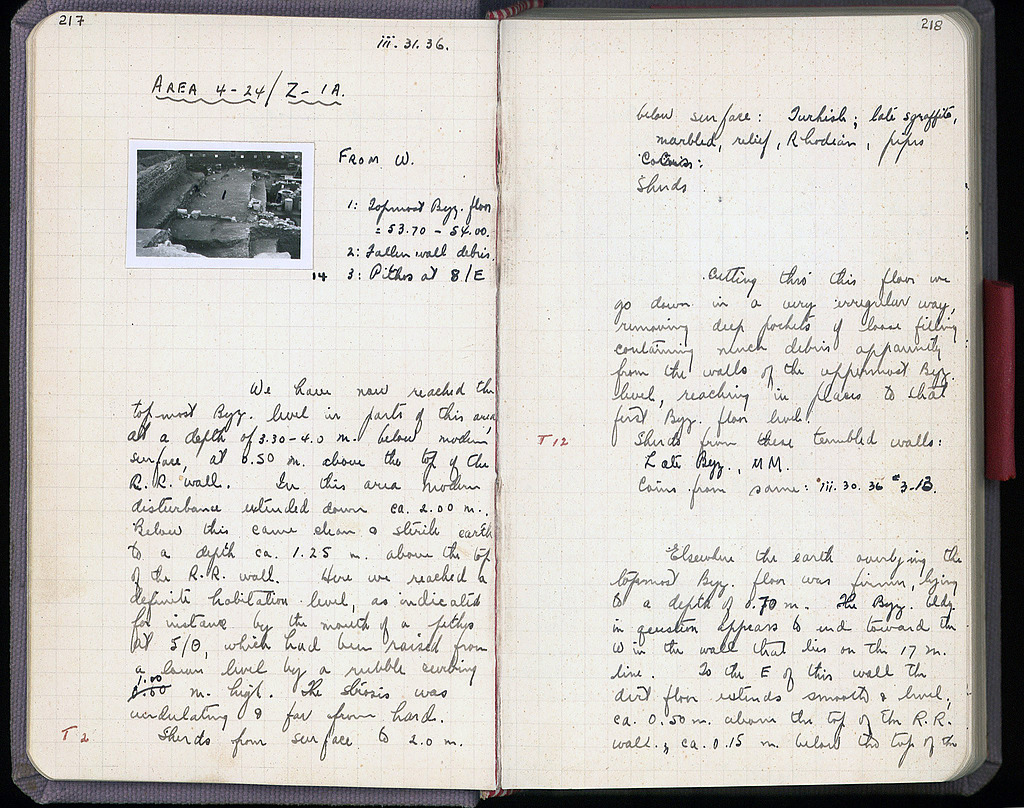 217
iii.31.36.
AREA 4-24/Z-1A.
FROM W.
1: Topmost Byz. floor
= 53.70 - 54.00.
2: Fallen wall debris.
14 3: Pithos at 8/E
We have now reached the
topmost Byz. level in parts of this area,
at a depth of 3.30-4.0 m. below modern
surface, at 0.50 m. above the top of the
R.R. wall. In this area modern
disturbance extended down ca. 2.00 m..
Below this came clean & sterile earth
to a depth ca. 1.25 m. above the top
of the R.R. wall. Here we reached a
definite habitation level, as indicated
for instance by the mouth of a pithos
at 5/Θ, which had been raised from
a lower level by a rubble
1.00
m. high. The strosis was
undulating & far from hard.
T 2 Sherds from surface to 2.0 m.
218
below surface: Turkish; late sgraffito,
marbled, relief, Rhodian, pipes
Coins:
Sherds
Cutting thro' this floor we
go down in a very irregular way,
removing deep pockets of loose filling
containing much debris apparently
from the walls of the uppermost Byz.
level, reaching in places to that
first Byz. floor level.
T 12 Sherds from these tumbled walls:
Late Byz., MM.
Coins from same: iii.30.36 #3-13.
Elsewhere the earth overlying the
topmost Byz. floor was firmer, lying
to a depth of 0.70 m. The Byz. bldg.
in question appears to end toward the
W in the wall that lies on the 17 m.
line. To the E of this wall the
dirt floor extends smooth & level,
ca. 0.50 m. above the top of the R.R.
wall, ca. 0.15 m. below the top of the